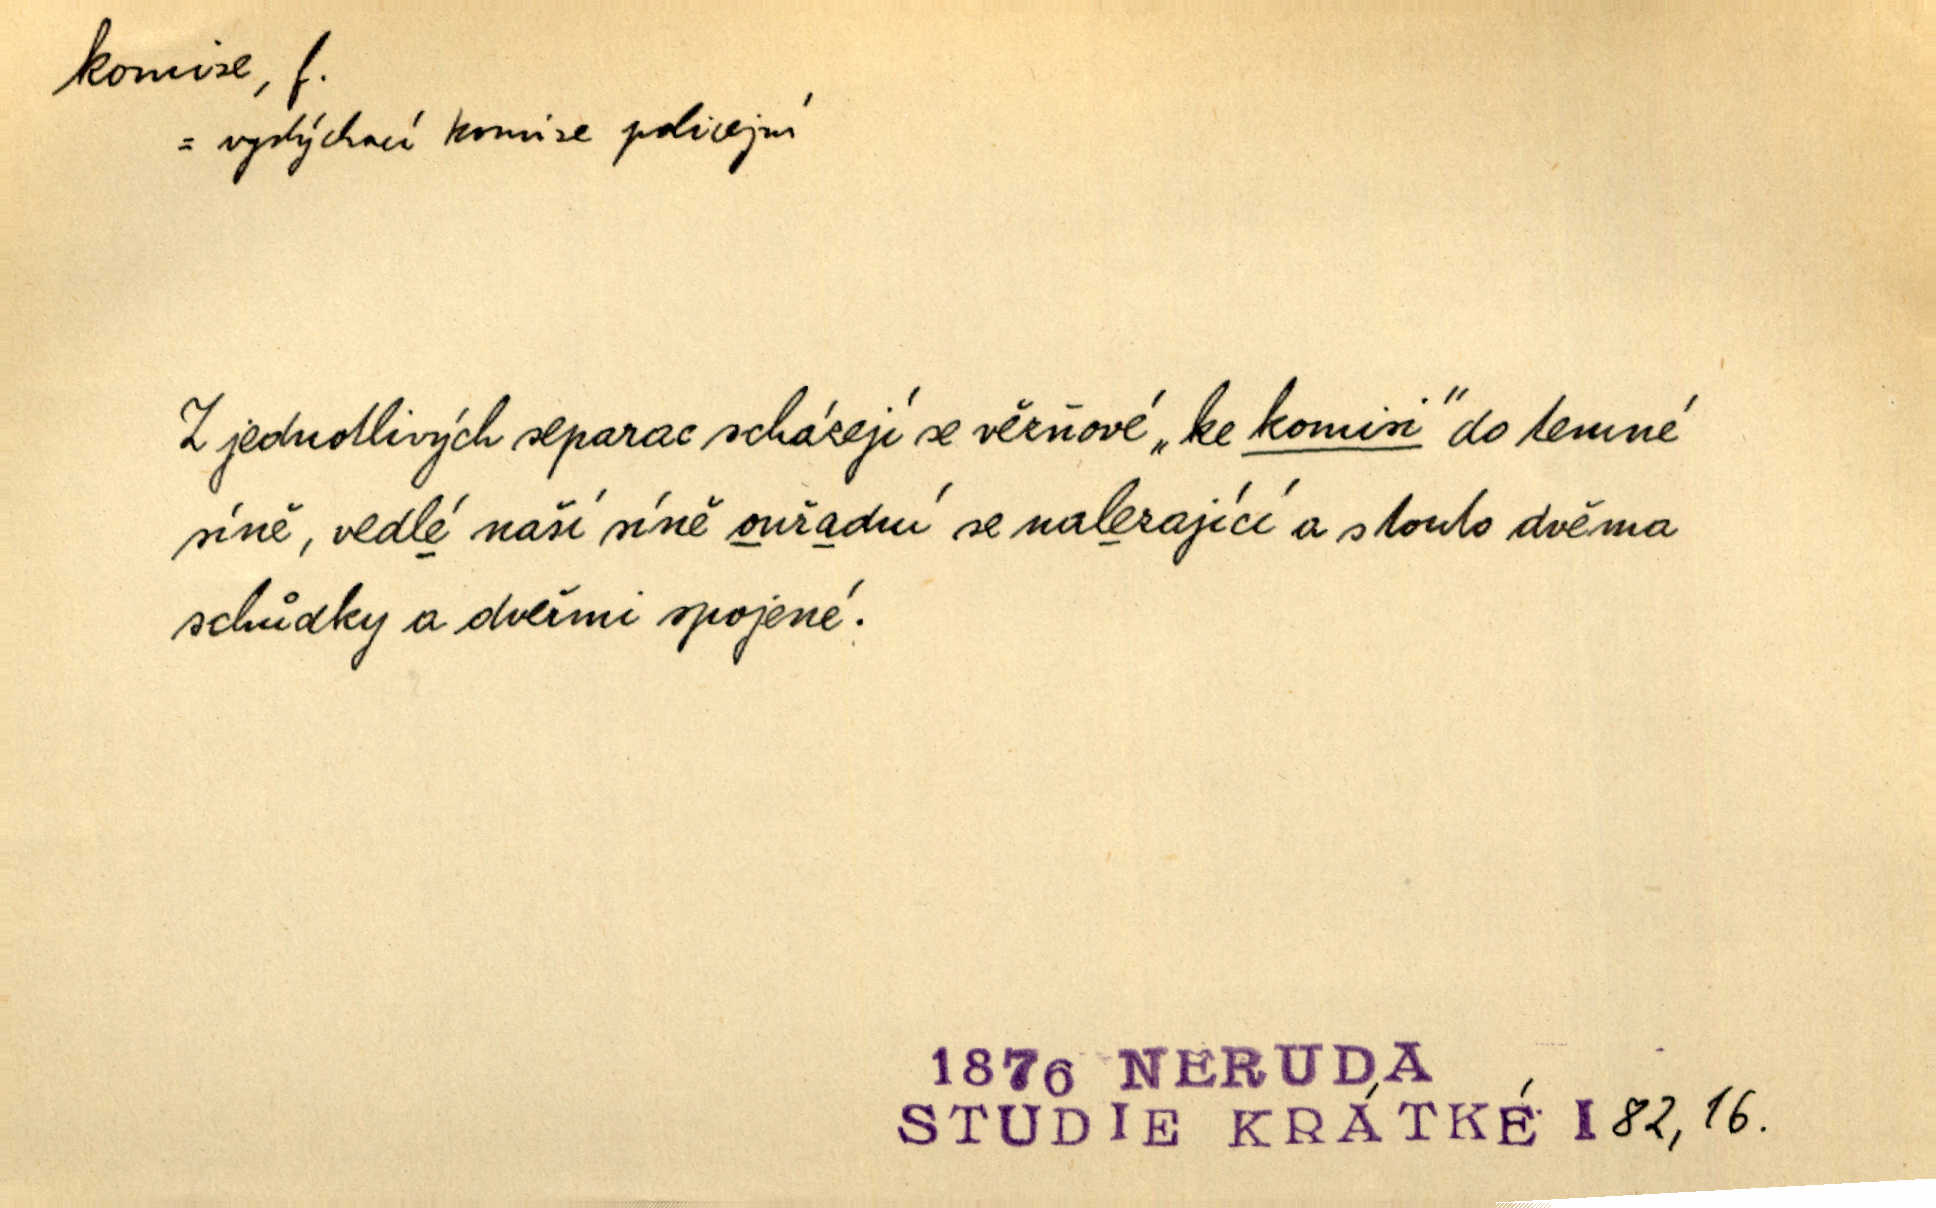 komise, f.
= vyslýchací komise policejní
Z jednotlivých separac scházejí se věznové „ke komisi" do temné
síně, vedlé naší síně ouřadní se nalezající a s touto dvěma
schůdky a dveřmi spojené.
1876 NERUDA
STUDIE KRÁTKÉ I 82, 16.